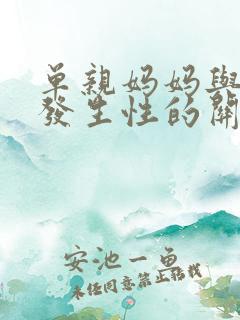 單親媽媽與
發生性的關
安池一魚
未經同意禁止轉載